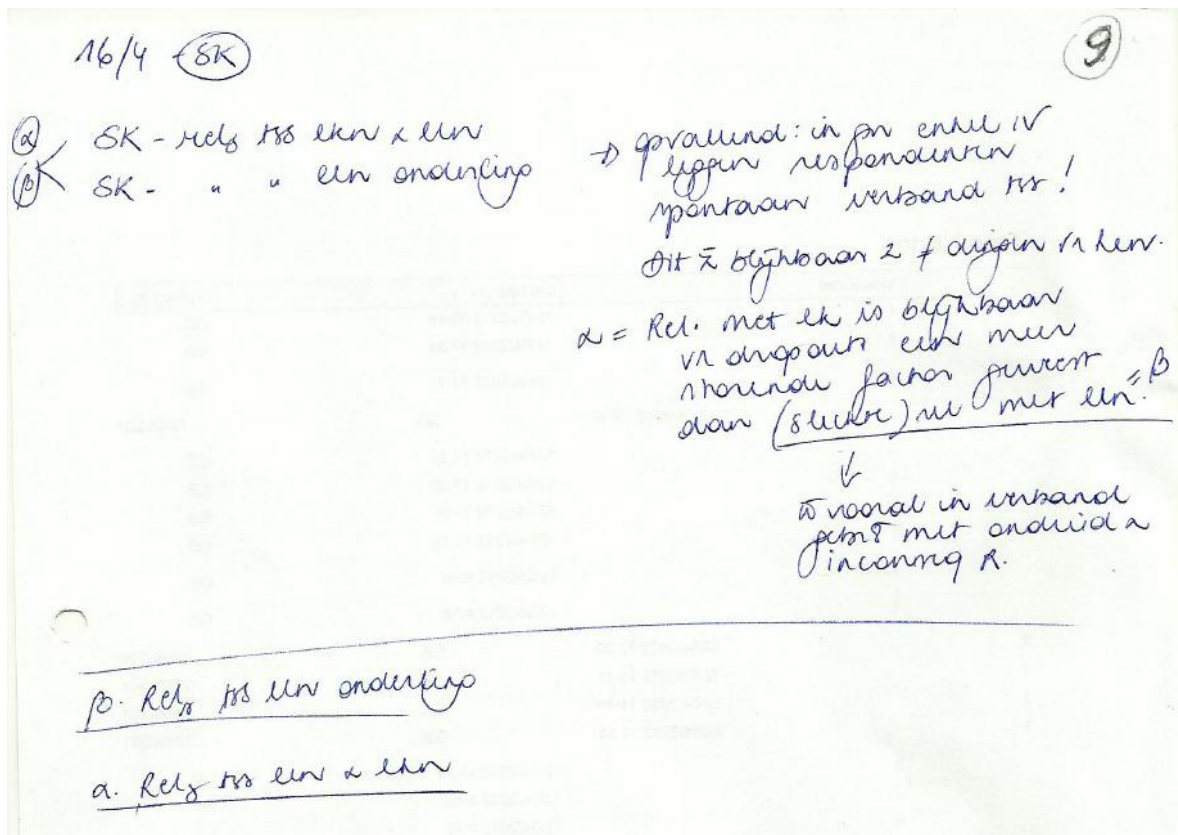 16/4 - SK
9
α SK - rels tss lkn & lln
β SK - " " lln onderling
→ opvallend: in gn enkel IV
leggen respondenten
spontaan verband tss!
Dit blijkbaar 2 ≠ dingen vr hen.
α = Rel. met lk is blijkbaar
vr dropouts een meer
storende factor geweest
dan (slechte) rel met lln. = β
↓
vooral in verband
met onduid &
inconseq R.
β. Rels tss lln onderling
α. Rels tss lln & lkn